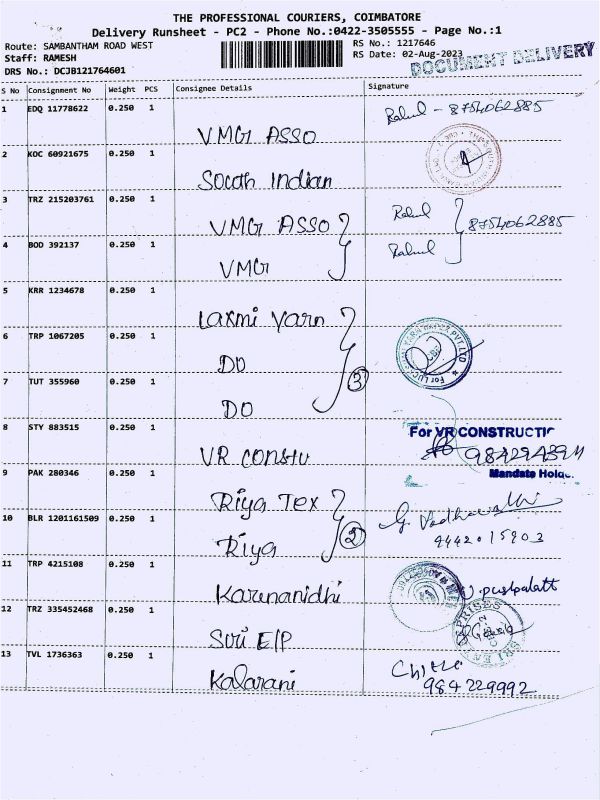 THE PROFESSIONAL COURIERS, COIMBATORE
Delivery Runsheet - PC2 - Phone No.:0422-3505555 - Page No.:1
Route: SAMBANTHAM ROAD WEST
RS No.: 1217646
Staff: RAMESH
RS Date: 02-Aug-2023
DOCUMENT DELIVERY
DRS No.: DCJB121764601
S No Consignment No Weight PCS Consignee Details Signature
1 EDQ 11778622 0.250 1 VMG ASSO Rahul - 8754062885
2 KOC 60921675 0.250 1 South Indian
3 TRZ 215203761 0.250 1 VMG ASSO Rahul 8754062885
4 BOD 392137 0.250 1 VMG Rahul
5 KRR 1234678 0.250 1 Laxmi Yarn
6 TRP 1067205 0.250 1 DO
7 TUT 355960 0.250 1 DO 3
8 STY 883515 0.250 1 VR Constu For VR CONSTRUCTIO
Mandate Hold
9 PAK 280346 0.250 1 Riya Tex
10 BLR 1201161509 0.250 1 Riya 2 9442015902
11 TRP 4215108 0.250 1 Karunanidhi
12 TRZ 335452468 0.250 1 Sri E/P
13 TVL 1736363 0.250 1 Kalarani 984229992